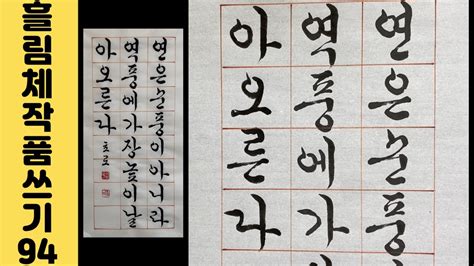 흘림체작품쓰기94
연은순풍이아니라
역풍에가장높이날
아오른다
연은순풍
역풍에가
아오른다